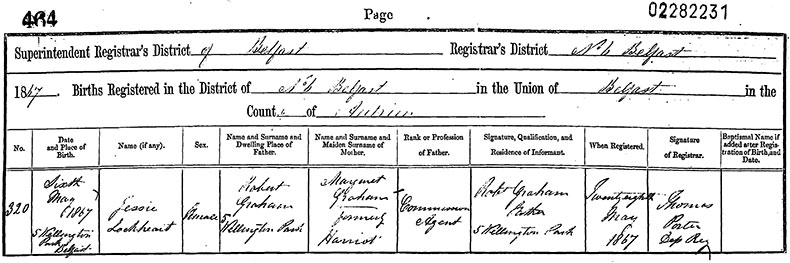 464 Page 02282231
Superintendent Registrar's District of Belfast Registrar's District No. 6 Belfast
1867. Births Registered in the District of No. 6 Belfast in the Union of Belfast in the
County of Antrim
No. Date and Place of Birth. Name (if any). Sex. Name and Surname and Dwelling Place of Father. Name and Surname and Maiden Surname of Mother. Rank or Profession of Father. Signature, Qualification, and Residence of Informant. When Registered. Signature of Registrar. Baptismal Name if added after Registration of Birth, and Date.
320 Sixth May 1867 5 Wellington Park Belfast Jessie Lockheart Female Robert Graham 5 Wellington Park Margaret Graham formerly Commission Agent Robt Graham Father 5 Wellington Park Twenty eighth May 1867 Thomas Porter Dep Reg